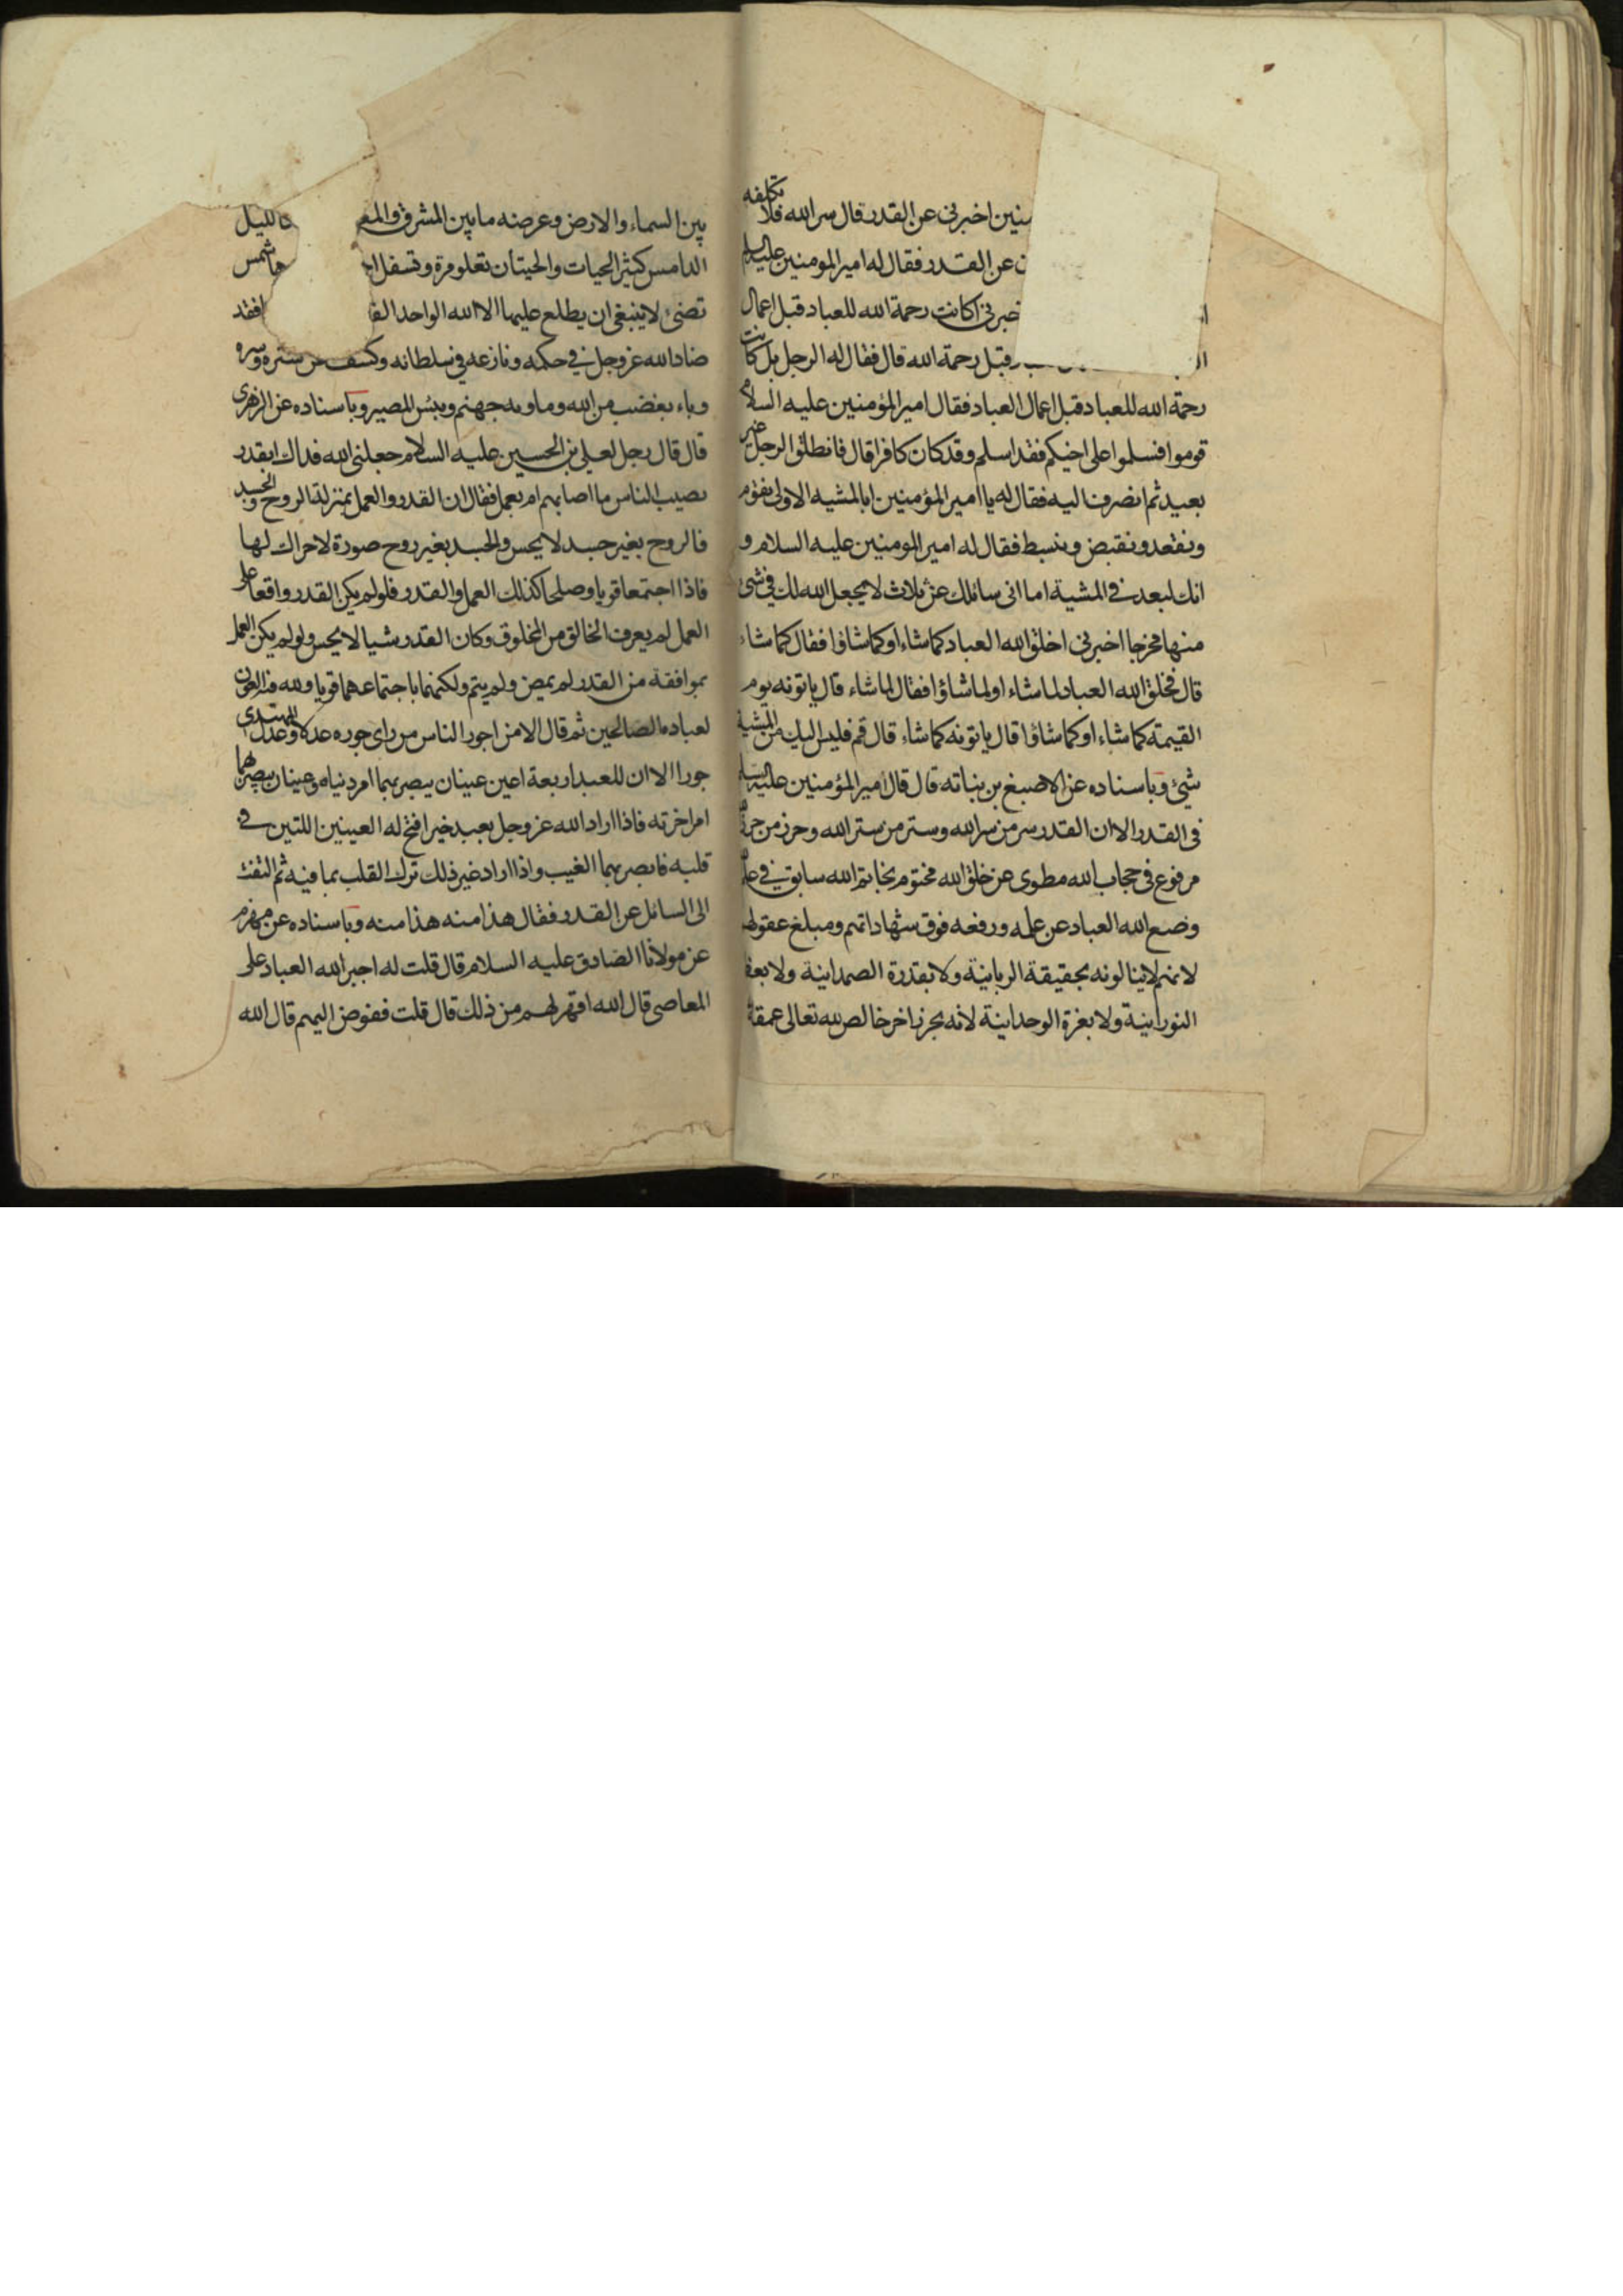 اخبرني عن القدر قال سر الله فلا تكلفه
عن القدر فقال له امير المومنين عليه السلم
اكانت رحمة الله للعباد قبل اعمال
قبل رحمة الله قال فقال له الرجل بل كانت
رحمة الله للعباد قبل اعمال العباد فقال امير المؤمنين عليه السلام
قوموا فسلموا على اخيكم فقد اسلم وقد كان كافرا قال فانطلق الرجل غير
بعيد ثم انصرف اليه فقال له يا امير المؤمنين ابالمشية الاولى نقوم
ونقعد ونقبض ونبسط فقال له امير المومنين عليه السلام و
انك لبعد في المشية اما انى سائلك عن ثلاث لا يجعل الله لك في شئ
منها مخرجا اخبرني اخلق الله العباد كما شاء او كما شاؤا فقال كما شاء
قال فخلق الله العباد لما شاء او لما شاؤا فقال لما شاء قال ياتونه يوم
القيمة كما شاء او كما شاؤا قال ياتونه كما شاء قال قم فليس اليك من المشية
شيئ وباسناده عن الاصبغ بن نباته قال قال امير المؤمنين عليه السلم
في القدر الا ان القدر سر من سر الله وستر من ستر الله وحرز من حرز
مرفوع في حجاب الله مطوى عن خلق الله مختوم بخاتم الله سابق في علم
وضع الله العباد عن علمه ورفعه فوق شهاداتهم ومبلغ عقولهم
لانهم لاينالونه بحقيقة الربانية ولا بقدرة الصمدانية ولا بعظ
النورانية ولا بعزة الوحدانية لانه بحر زاخر خالص لله تعالى عمقه
بين السماء والارض وعرضه ما بين المشرق والمغ كالليل
الدامس كثير الحيات والحيتان تعلو مرة وتسفل شمس
تضئ لاينبغي ان يطلع عليها الا الله الواحد فقد
ضاد الله عز وجل في حكمه ونازعه في سلطانه وكشف عن ستره وسره
وباء بغضب من الله وماويه جهنم وبئس المصير وباسناده عن الزهرى
قال قال رجل لعلي بن الحسين عليه السلام جعلني الله فداك ابقدر
يصيب الناس ما اصابهم ام بعمل فقال ان القدر والعمل بمنزلة الروح والجسد
فالروح بغير جسد لا يحس والجسد بغير روح صورة لاحراك لها
فاذا اجتمعا قويا وصلحا كذلك العمل والقدر فلو لم يكن القدر واقعا على
العمل لم يعرف الخالق من المخلوق وكان القدر شيا لا يحس ولو لم يكن العمل
بموافقة من القدر لم يمض ولم يتم ولكنهما باجتماعهما قويا ولله فيه العون
لعباده الصالحين ثم قال الا من اجور الناس من راى جوره عدلا وعدل المهتدى
جورا الا ان للعبد اربعة اعين عينان يبصر بهما امر دنياه وعينان يبصر بهما
امر اخرته فاذا اراد الله عز وجل بعبد خيرا فتح له العينين اللتين في
قلبه فابصر بهما الغيب واذا اراد غير ذلك ترك القلب بما فيه ثم التفت
الى السائل عن القدر فقال هذا منه هذا منه وباسناده عن مهزم
عن مولانا الصادق عليه السلام قال قلت له اجبر الله العباد على
المعاصي قال الله اقهر لهم من ذلك قال قلت ففوض اليهم قال الله